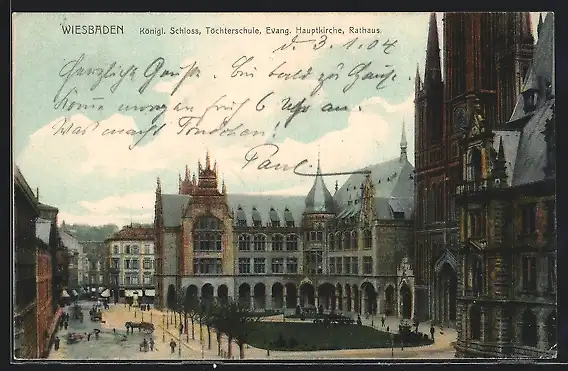 WIESBADEN Königl. Schloss, Töchterschule, Evang. Hauptkirche, Rathaus.
d 3. 1. 04
Herzliche Grüße. Bin bald zu Hause,
Komme morgen früh 6 Uhr an.
Was macht
Paul